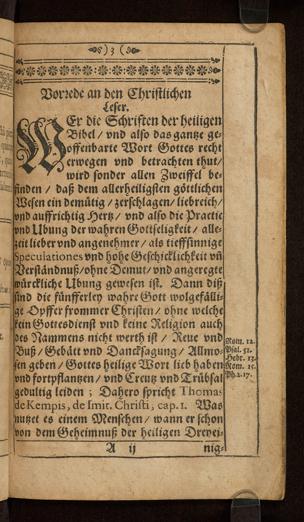 )3(
Vorrede an den Christlichen
Leser.
WEr die Schriften der heiligen
Bibel / vnd also das gantze ge-
offenbarte Wort Gottes recht
erwegen vnd betrachten thut /
wird sonder allen Zweiffel be-
finden / daß dem allerheiligsten göttlichen
Wesen ein demütig / zerschlagen / liebreich /
vnd auffrichtig Hertz / vnd also die Practic
vnd Ubung der wahren Gottseligkeit / alle-
zeit lieber vnd angenehmer / als tieffsinnige
Speculationes vnd hohe Geschicklichkeit vn̄
Verständnuß / ohne Demut / vnd angeregte
würckliche Ubung gewesen ist. Dann diß
sind die fünfferley wahre Gott wolgefälli-
ge Opffer frommer Christen / ohne welche
kein Gottesdienst vnd keine Religion auch
des Nammens nicht werth ist / Reue vnd
Buß / Gebätt vnd Dancksagung / Allmo-
sen geben / Gottes heilige Wort lieb haben
vnd fortpflantzen / vnd Creutz vnd Trübsal
gedultig leiden ; Dahero spricht Thomas
de Kempis, de Imit. Christi; cap. 1. Was
nutzet es einem Menschen / wann er schon
von dem Geheimnuß der heiligen Dreyei-
A ij nig-
Rom. 12.
Psal. 51.
Hebr. 13.
Rom. 15.
Ph. 2. 17.